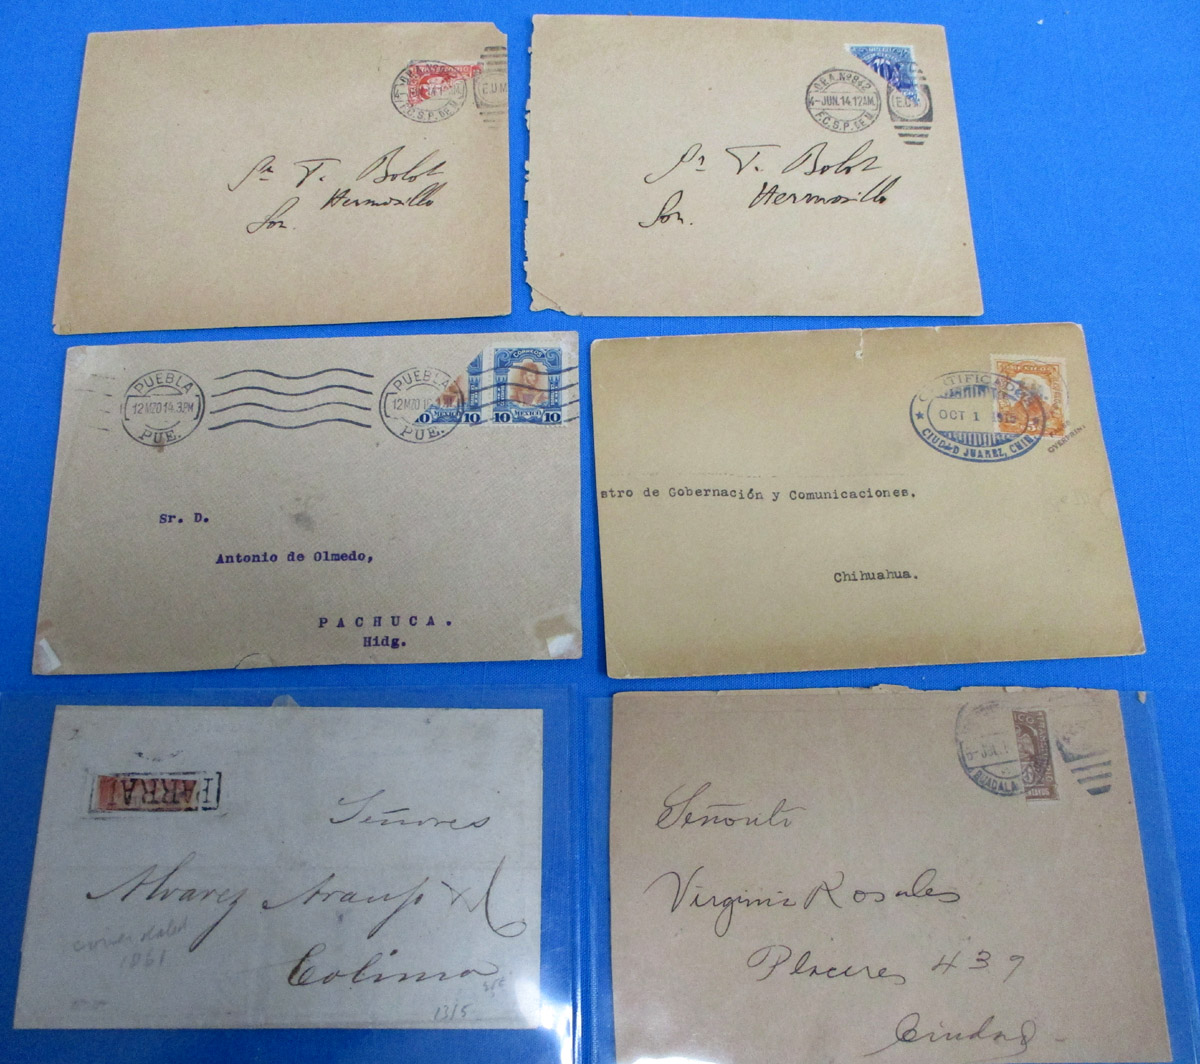 E.U.M
F.C.S.P. DE M.
Sr. T. Bolot
Hermosillo
Son.
O.B.A. Nº 862
4-JUN.14.12AM.
F.C.S.P. DE M.
Sr. T. Bolot
Hermosillo
Son.
PUEBLA
12MZO 14. 3PM
PUE.
PUEBLA
12MZO
PUE.
CORREOS
MEXICO
10
10 MEXICO 10
Sr. D.
Antonio de Olmedo,
PACHUCA.
Hidg.
OCT 1
CIUDAD JUAREZ, CHIH.
stro de Gobernación y Comunicaciones.
Chihuahua.
PARRAL
Señores
Alvarez Araujo
Colima
cover dated
1861
13/5
GUADALA
Señorita
Virginia Rosales
Placeres 439
Ciudad